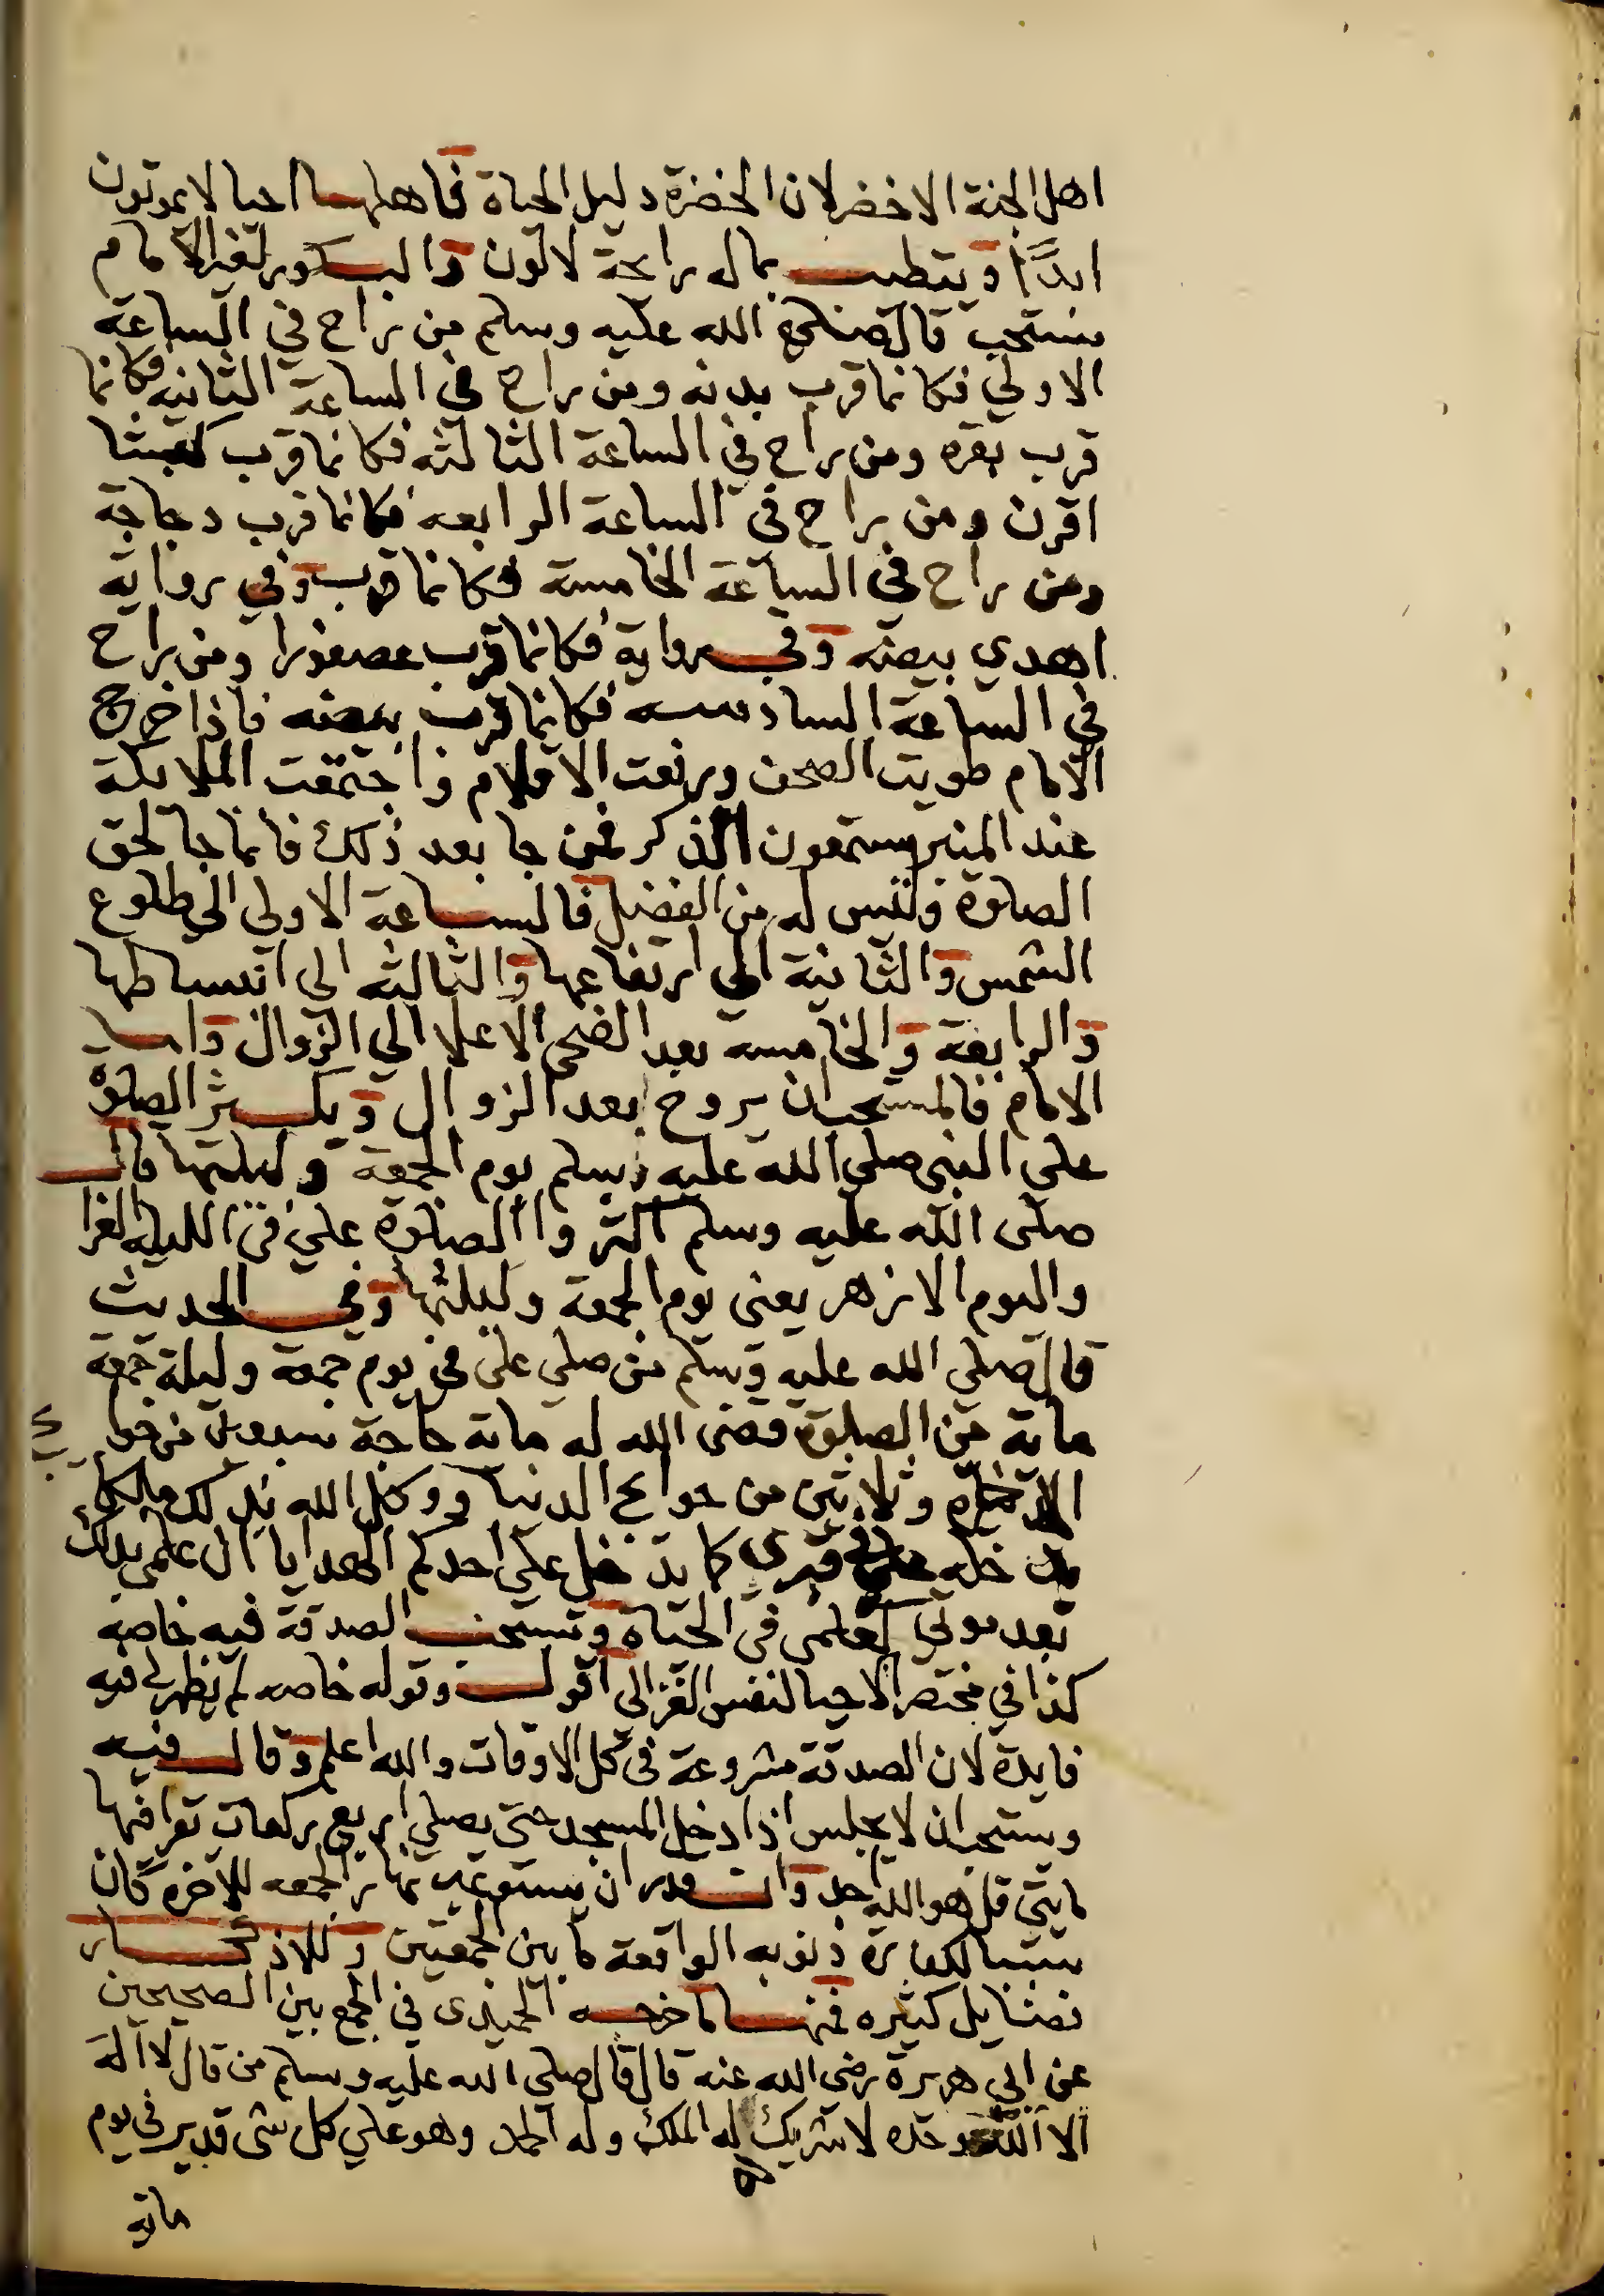 اهل الجنة الاخضر لان الخضرة دليل الحياة فاهلها احيا لا يموتون
ابدًا ويتطيب بماله رايحة لا لون والبكور لغير الامام
مستحب قال صلى الله عليه وسلم من راح في الساعة
الاولي فكانما قرب بدنه ومن راح في الساعة الثانيه فكانما
قرب بقره ومن راح في الساعة الثالثه فكانما قرب كبشا
اقرن ومن راح في الساعة الرابعه فكانما قرب دجاجة
ومن راح في الساعة الخامسة فكانما قرب وفي رواية
اهدي بيضه وفي رواية فكانما قرب عصفورا ومن راح
في الساعة السادسه فكانما قرب بيضه فاذا خرج
الامام طويت الصحف ورفعت الاقلام واجتمعت الملايكة
عند المنبر يستمعون الذكر فمن جا بعد ذلك فانما جا لحق
الصلوة وليس له من الفضل فالساعة الاولي الي طلوع
الشمس والثانية الي ارتفاعها والثالثه الي انبساطها
والرابعة والخامسه بعد الضحي الاعلا الي الزوال واما
الامام فالمستحب ان يروح بعد الزوال ويكثر الصلوة
علي النبي صلي الله عليه وسلم يوم الجمعة وليلتها قال
صلى الله عليه وسلم اكثروا الصلوة علي في الليله الغرا
واليوم الازهر يعني يوم الجمعة وليلتها وفي الحديث
قال صلي الله عليه وسلم من صلي علي في يوم جمعة وليلة جمعة
ماية من الصلوة قضى الله له ماية حاجة سبعين من حوايج
الاخرة وثلاثين من حوايج الدنيا ووكل الله بذلك ملكا
يدخله في قبري كما يدخل علي احدكم الهدايا ان علمي بذلك
بعد موتي كعلمي في الحياة وتستحب الصدقة فيه خاصه
كذا في مختصر الاحيا لنفس الغزالي اقول وقوله خاصه لم يظهر لي فيه
فايدة لان الصدقة مشروعة في كل الاوقات والله اعلم وقال فيه
ويستحب ان لا يجلس اذا دخل المسجد حتي يصلي اربع ركعات تقرا فيها
مايتي قل هو الله احد وان قدر ان يستوعب نهار الجمعه للاخرة كان
سببا لكفارة ذنوبه الواقعة ما بين الجمعتين وللاذكار
فضايل كثيره فمنها ما خرجه الحميدي في الجمع بين الصحيحين
عن ابي هريرة رضي الله عنه قال قال صلي الله عليه وسلم من قال لا اله
الا الله وحده لا شريك له له الملك وله الحمد وهو علي كل شي قدير في يوم
ماية